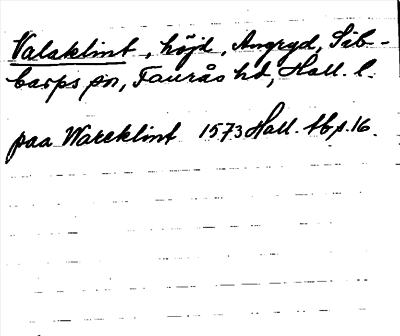 Valaklint, höjd, Angryd, Sib-
barps sn, Faurås hd, Hall. l.
paa Wareklint 1573 Hall. tb s. 16.